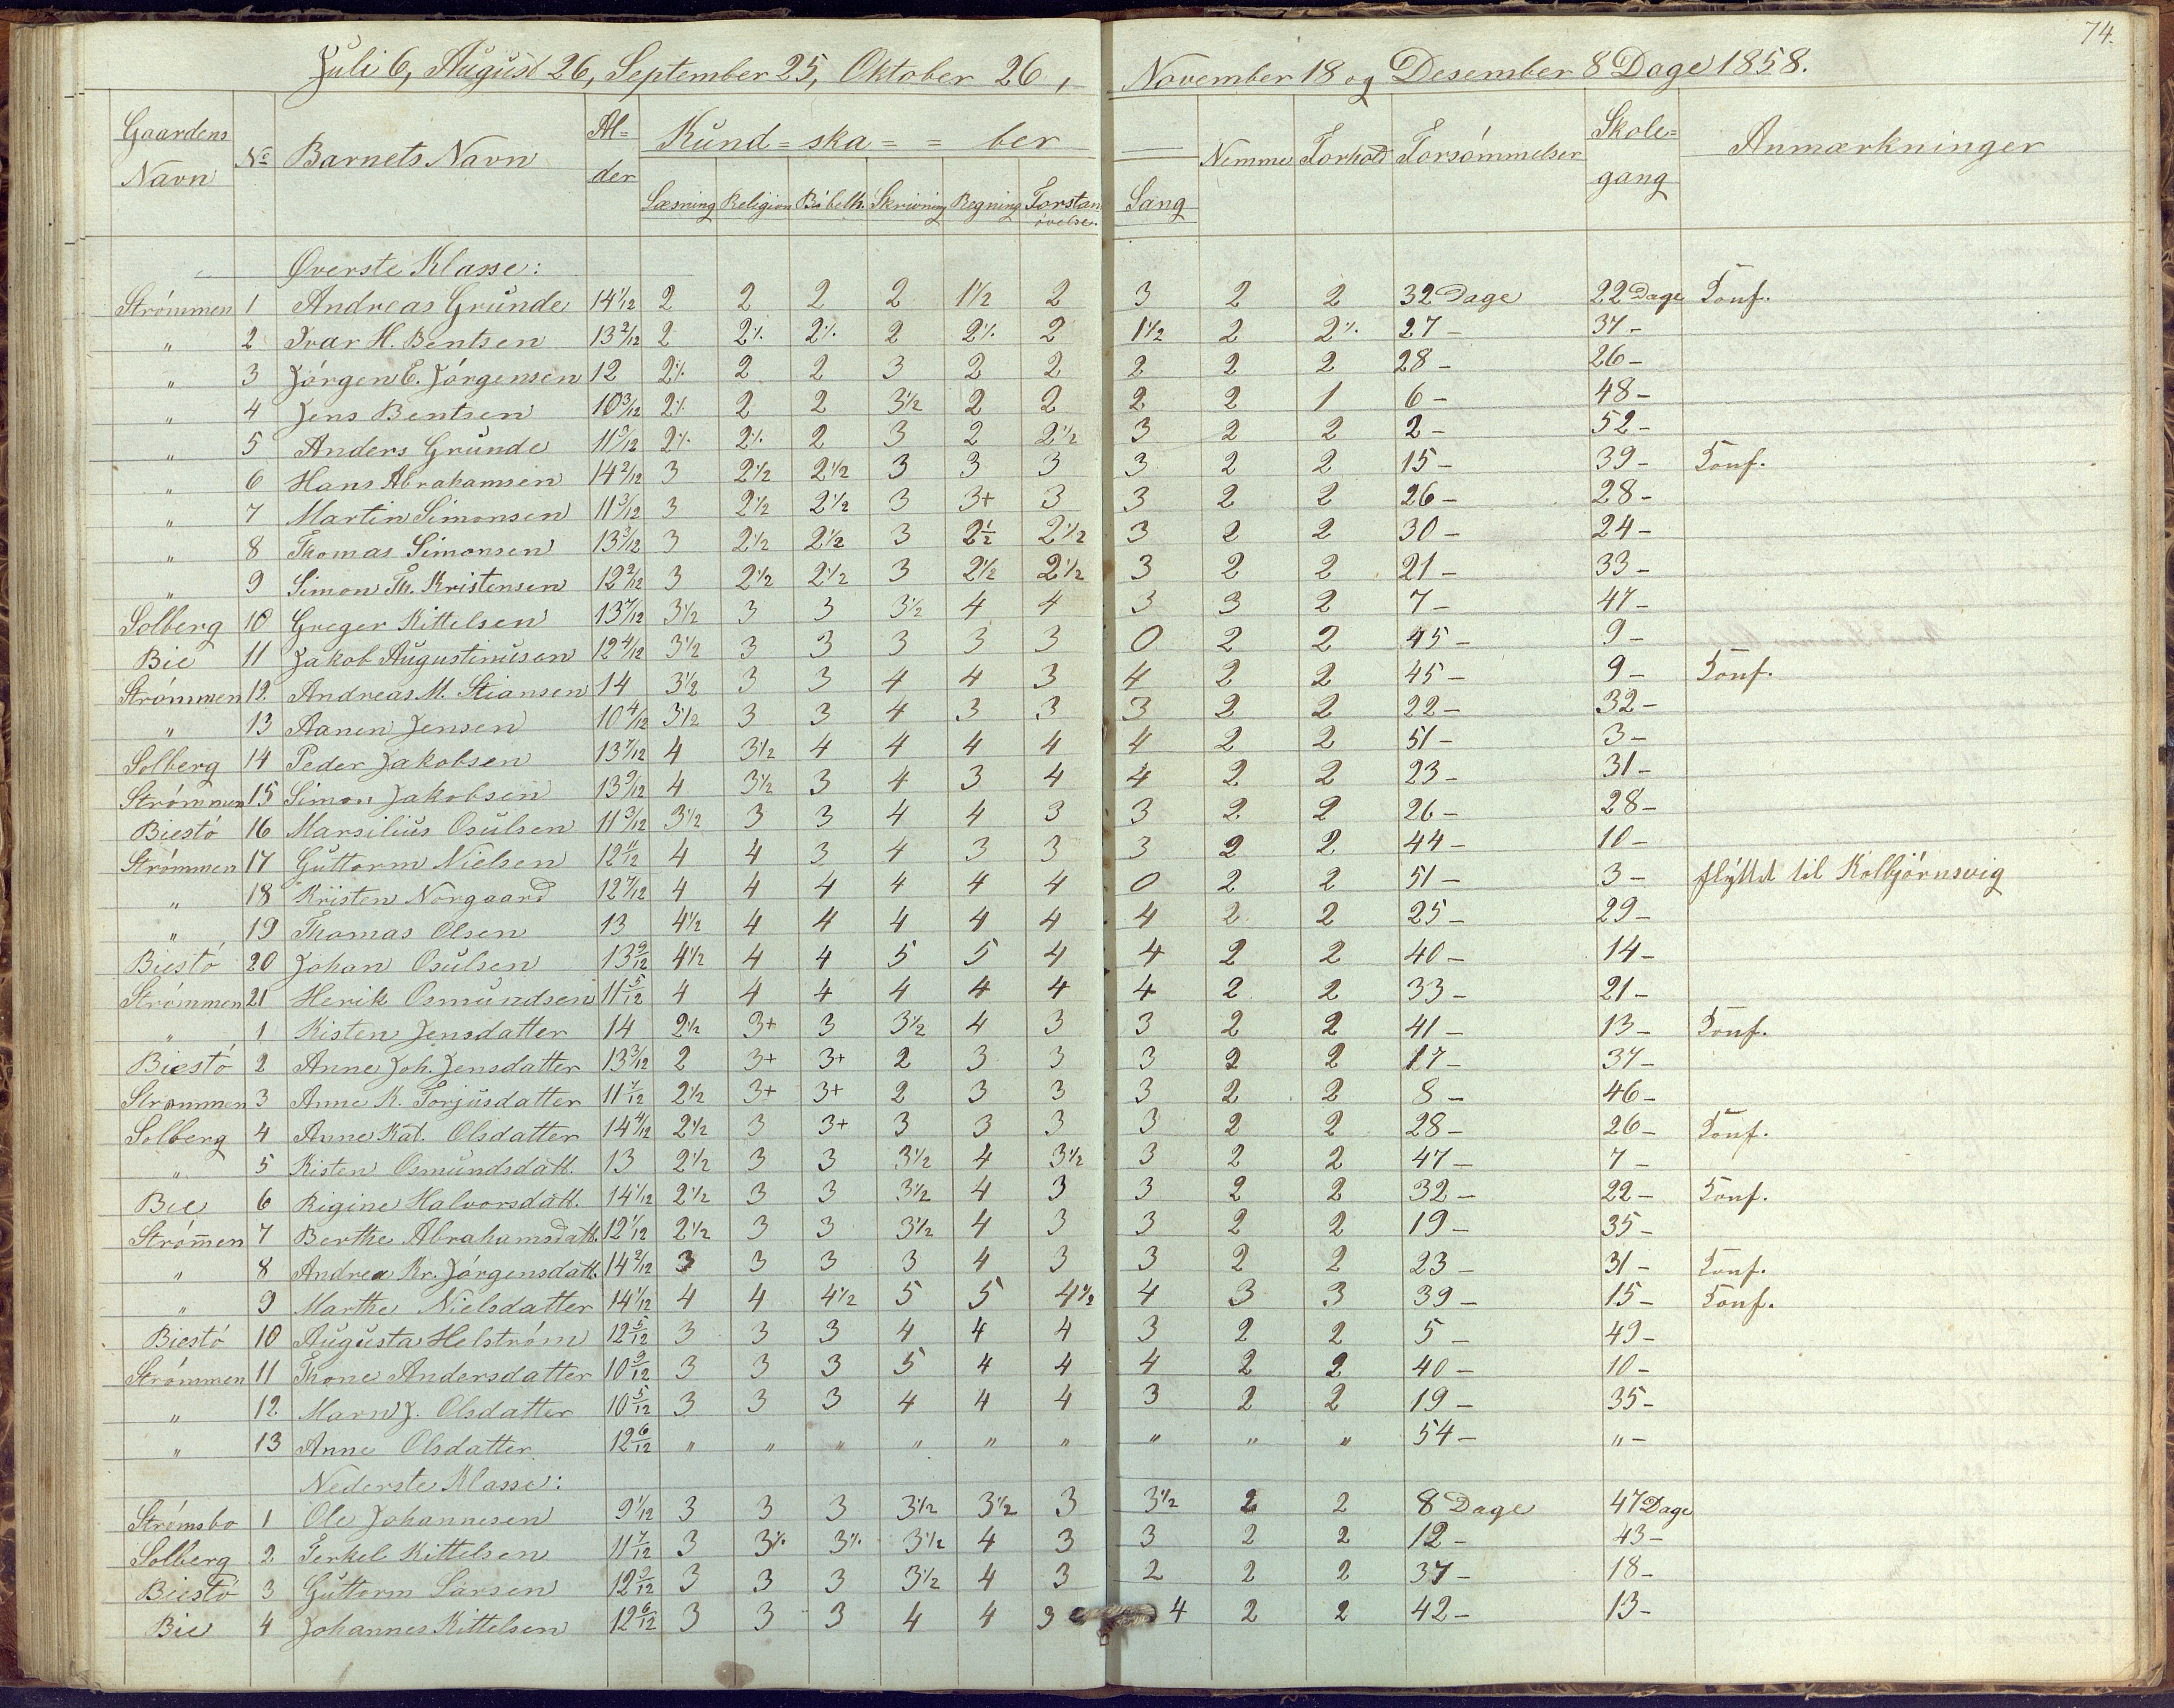 74.
Juli 6, August 26, September 25, Oktober 26, November 18 og Desember 8 Dage 1858.
Gaardens Navn | No | Barnets Navn | Al=der | Kund=ska==ber | Nemme | Forhold | Forsømmelser | Skole=gang | Anmærkninger
Læsning | Religion | Bibelh. | Skrivning | Regning | Forstan øvelse. | Sang
Øverste Klasse:
Strømmen 1 Andreas Grunde 14 1/12 2 2 2 2 1½ 2 3 2 2 32 Dage 22 Dage Konf.
" 2 Ivar H. Bentsen 13 2/12 2 2⁒ 2⁒ 2 2⁒ 2 1½ 2 2⁒ 27 - 37 -
" 3 Jørgen E. Jørgensen 12 2⁒ 2 2 3 2 2 2 2 2 28 - 26 -
" 4 Jens Bentsen 10 3/12 2⁒ 2 2 3½ 2 2 2 2 1 6 - 48 -
" 5 Anders Grunde 11 5/12 2⁒ 2⁒ 2 3 2 2½ 3 2 2 2 - 52 -
" 6 Hans Abrahamsen 14 2/12 3 2½ 2½ 3 3 3 3 2 2 15 - 39 - Konf.
" 7 Martin Simonsen 11 3/12 3 2½ 2½ 3 3+ 3 3 2 2 26 - 28 -
" 8 Thomas Simonsen 13 3/12 3 2½ 2½ 3 2½ 2½ 3 2 2 30 - 24 -
" 9 Simon Th. Kristensen 12 2/12 3 2½ 2½ 3 2½ 2½ 3 2 2 21 - 33 -
Solberg 10 Greger Kittelsen 13 7/12 3½ 3 3 3½ 4 4 3 3 2 7 - 47 -
Bie 11 Jakob Augustinusen 12 4/12 3½ 3 3 3 3 3 0 2 2 45 - 9 -
Strømmen 12. Andreas M. Stiansen 14 3½ 3 3 4 4 3 4 2 2 45 - 9 - Konf.
" 13 Aanen Jensen 10 4/12 3½ 3 3 4 3 3 3 2 2 22 - 32 -
Solberg 14 Peder Jakobsen 13 7/12 4 3½ 4 4 4 4 4 2 2 51 - 3 -
Strømmen 15 Simon Jakobsen 13 9/12 4 3½ 3 4 3 4 4 2 2 23 - 31 -
Biestø 16 Marsilius Osulsen 11 3/12 3½ 3 3 4 4 3 3 2 2 26 - 28 -
Strømmen 17 Guttorm Nielsen 12 11/12 4 4 3 4 3 3 3 2 2 44 - 10 -
" 18 Kristen Norgaard 12 7/12 4 4 4 4 4 4 0 2 2 51 - 3 - flyttet til Kolbjørnsvig
" 19 Thomas Olsen 13 4½ 4 4 4 4 4 4 2 2 25 - 29 -
Biestø 20 Johan Osulsen 13 9/12 4½ 4 4 5 5 4 4 2 2 40 - 14 -
Strømmen 21 Henik Osmundsen 11 5/12 4 4 4 4 4 4 4 2 2 33 - 21 -
" 1 Kisten Jensdatter 14 2½ 3+ 3 3½ 4 3 3 2 2 41 - 13 - Konf.
Biestø 2 Anne Joh. Jensdatter 13 3/12 2 3+ 3+ 2 3 3 3 2 2 17 - 37 -
Strømmen 3 Anne K. Torjusdatter 11 7/12 2½ 3+ 3+ 2 3 3 3 2 2 8 - 46 -
Solberg 4 Anne Kat. Olsdatter 14 4/12 2½ 3 3+ 3 3 3 3 2 2 28 - 26 - Konf.
" 5 Kisten Osmundsdatt. 13 2½ 3 3 3½ 4 3½ 3 2 2 47 - 7 -
Bie 6 Rigine Halvorsdatt. 14 1/12 2½ 3 3 3½ 4 3 3 2 2 32 - 22 - Konf.
Strømen 7 Berthe Abrahamsdatt. 12 1/12 2½ 3 3 3½ 4 3 3 2 2 19 - 35 -
" 8 Andrea Kr. Jørgensdatt. 14 2/12 3 3 3 3 4 3 3 2 2 23 - 31 - Konf.
" 9 Marthe Nielsdatter 14 1/12 4 4 4½ 5 5 4½ 4 3 3 39 - 15 - Konf.
Biestø 10 Augusta Helstrøm 12 5/12 3 3 3 4 4 4 3 2 2 5 - 49 -
Strømmen 11 Thone Andersdatter 10 9/12 3 3 3 5 4 4 4 2 2 40 - 10 -
" 12. Maren J. Olsdatter 10 5/12 3 3 3 4 4 4 3 2 2 19 - 35 -
" 13 Anne Olsdatter 12 6/12 " " " " " " " " " 54 - " -
Nederste Klasse:
Strømsbo 1 Ole Johannesen 9 1/12 3 3 3 3½ 3½ 3 3½ 2 2 8 Dage 47 Dage
Solberg 2 Terkel Kittelsen 11 7/12 3 3⁒ 3⁒ 3½ 4 3 3 2 2 12 - 43 -
Biestø 3 Guttorm Larsen 12 9/12 3 3 3 3½ 4 3 2 2 2 37 - 18 -
Bie 4 Johannes Kittelsen 12 6/12 3 3 3 4 4 3 4 2 2 42 - 13 -